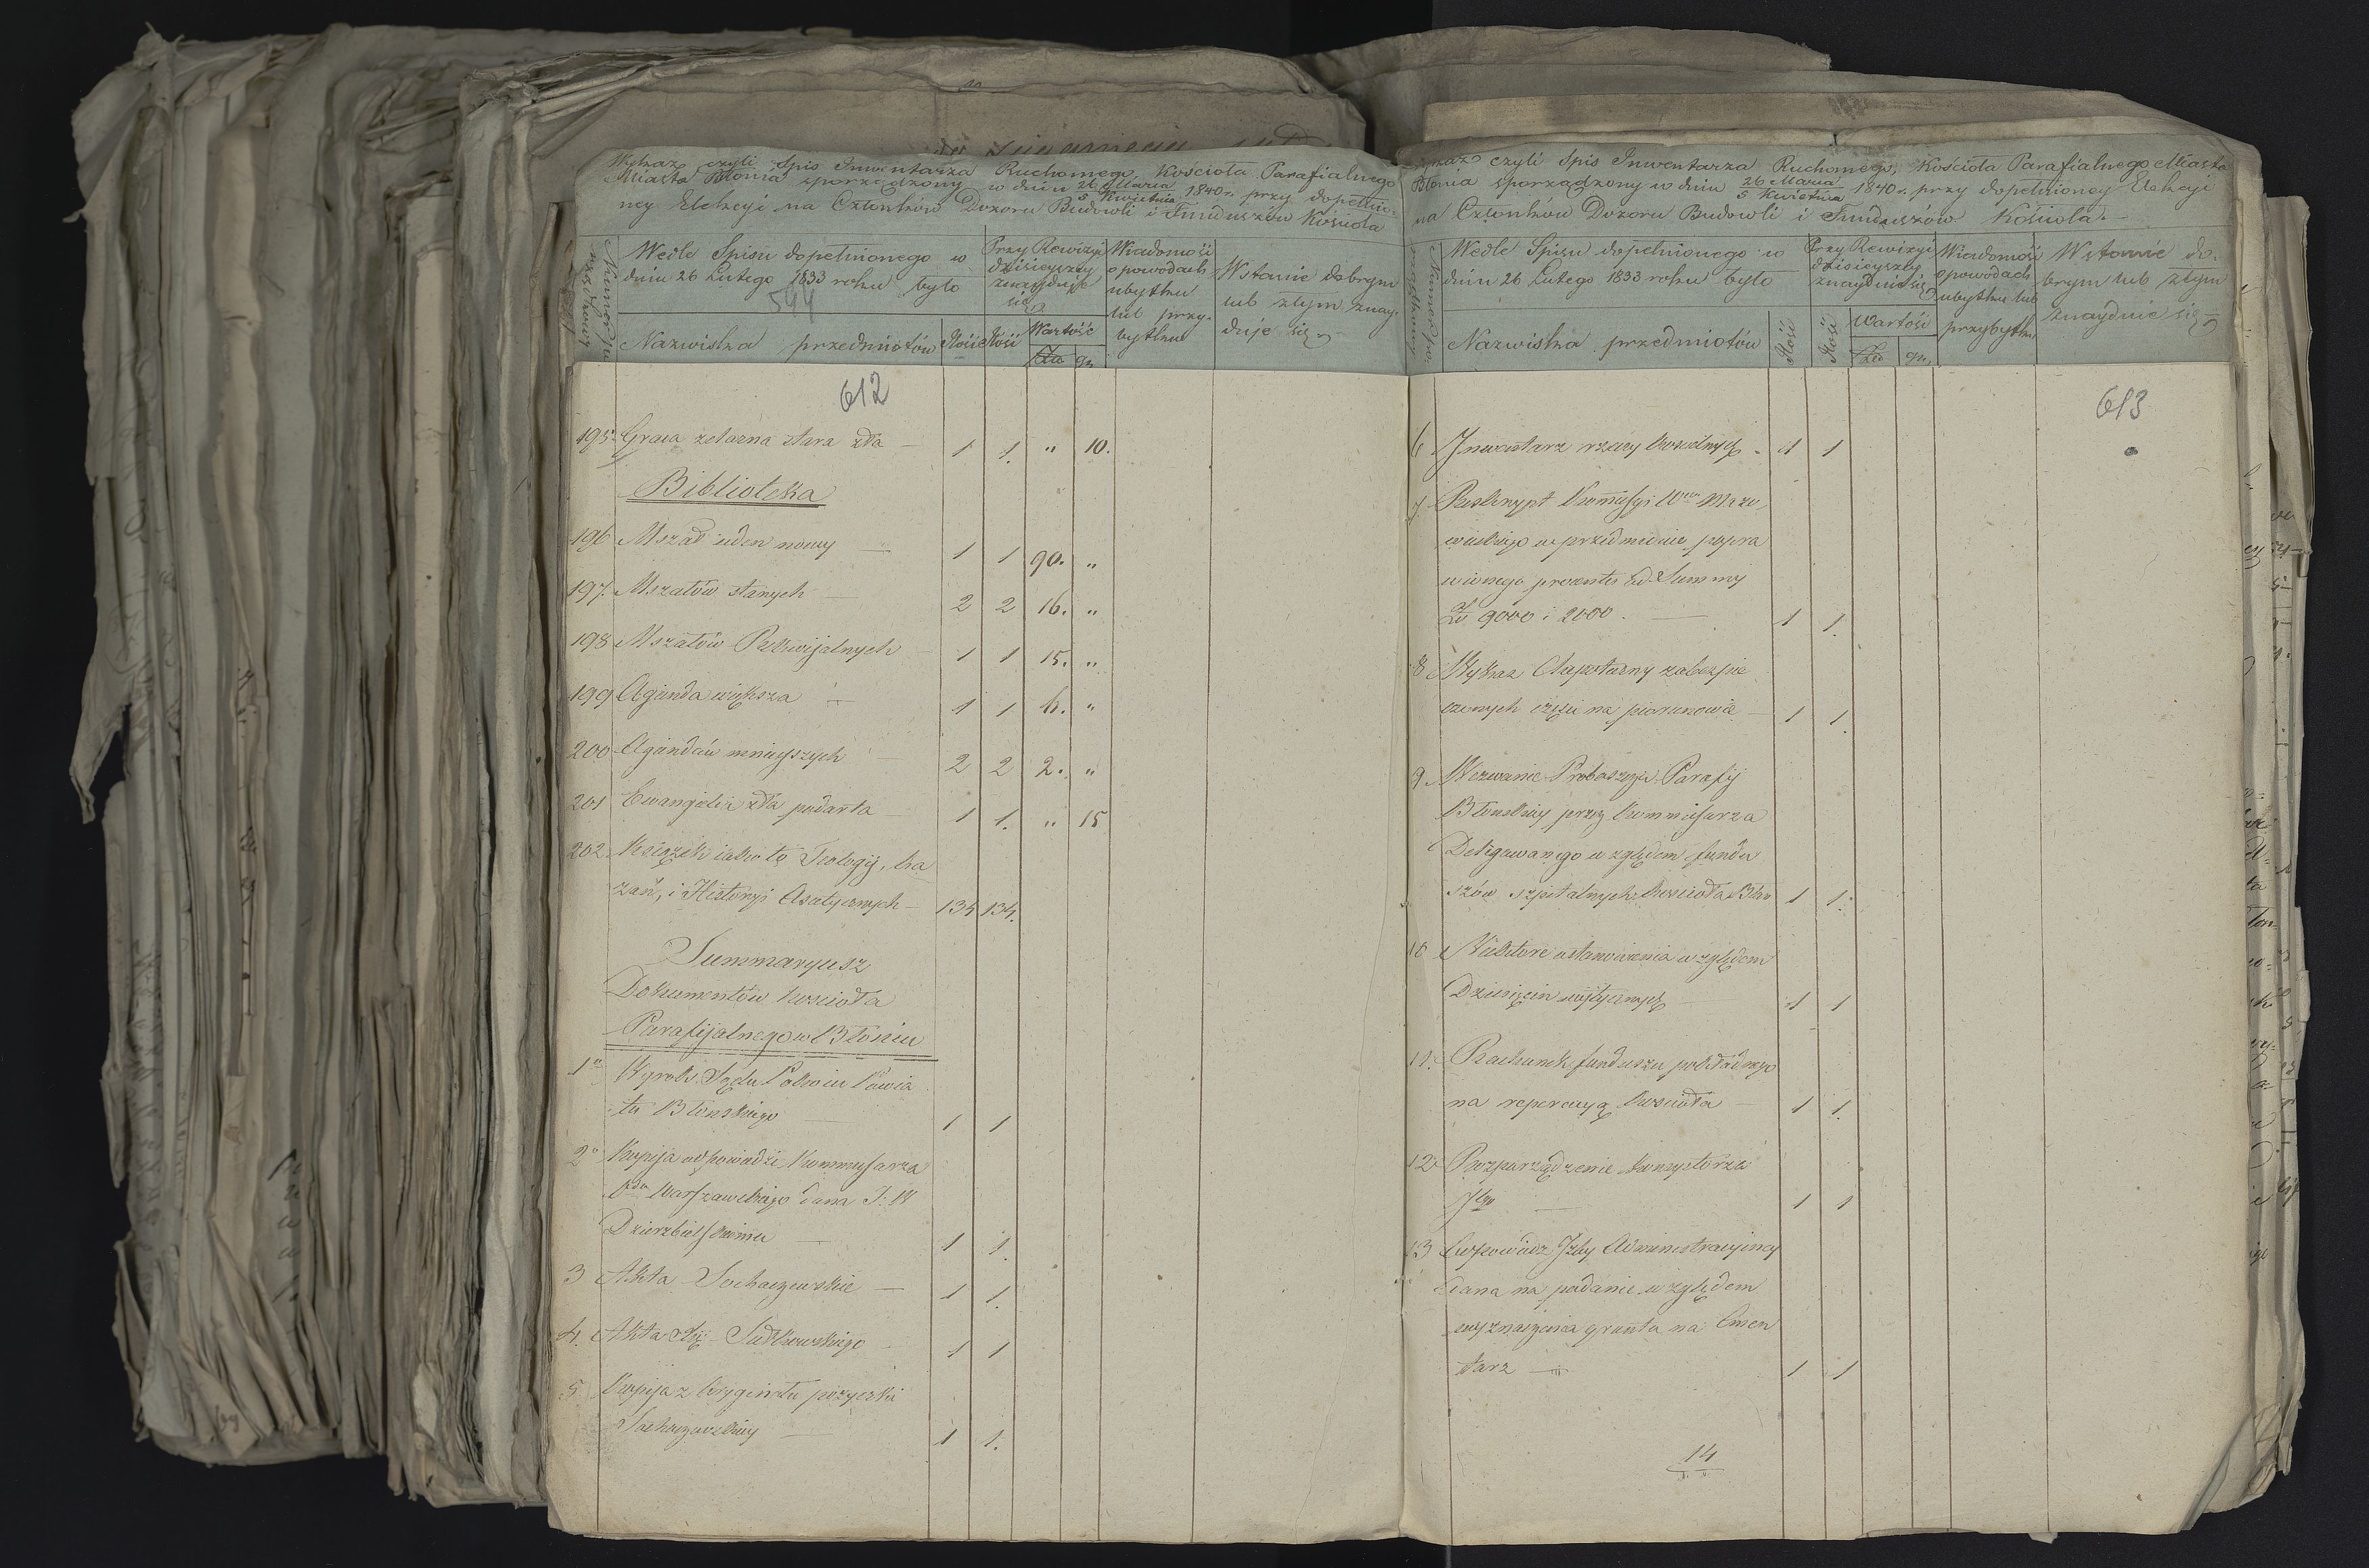 Wykaz czyli Spis Inwentarza Ruchomego, Kościoła Parafialnego
Miasta Błonia sporządzony w dniu 26 Marca / 5 Kwietnia 1840 r. przy dopełnio-
ney Elekcyi na Członków Dozoru Budowli i Funduszów Kościoła
Numer
Wedle Spisu dopełnionego w
dniu 26 Lutego 1833 roku było
544
Nazwiska przedmiotów
Ilość
Przy Rewizyi
dzisieyszey
znayduje
się
Ilość
Wartość
Złto gr.
Wiadomość
o powodach
ubytku
lub przy-
bytku
W stanie dobrym
lub złym znay-
duje się
612
195. Graca żelazna stara zła — 1 1. " 10.
Biblioteka
196 Mszał ieden nowy — 1 1 90. "
197. Mszałów starych — 2 2 16. "
198 Mszałów Rekwijalnych 1 1 15. "
199 Agenda większa — 1 1 6. "
200 Agendów mnieyszych — 2 2 2. "
201 Ewangelia zła podarta 1 1. " 15
202. Książek iako to Teologij, ka
zań, i Historyi Ascetycznych — 134 134.
Summaryusz
Dokumentów kościoła
Parafijalnego w Błoniu
1o Wyrok Sądu Pokoiu Powia
tu Błońskiego — 1 1
2o Kopija odpowiedzi Kommissarza
Warszawskiego dana J. W
Dzierzbickiemu — 1 1.
3 Akta Sochaczewskie — 1 1.
4. Akta Sułkowskiego — 1 1
5 Kopija z Oryginału pożyczki
Sochaczewskiey — 1 1.
Wykaz czyli Spis Inwentarza Ruchomego, Kościoła Parafialnego Miasta
Błonia sporządzony w dniu 26 Marca / 5 Kwietnia 1840 r. przy dopełnioney Elekcyi
na Członków Dozoru Budowli i Funduszów Kościoła.—
Numer
Wedle Spisu dopełnionego w
dniu 26 Lutego 1833 roku było
Nazwiska przedmiotów
Ilość
Przy Rewizyi
dzisieyszey
znayduie się
Ilość
Wartość
Złto gr.
Wiadomość
o powodach
ubytku lub
przybytku
W stanie do-
brym lub złym
znayduie się
613
6 Inwentarz rzeczy kościelnych - 1 1
7 Reskrypt Kommissyi Wdztwa Mazo
wieckiego w przedmiocie popra
wionego procentu od Summy
Zł 9000 i 2000. — 1 1.
8 Wykaz zabezpie
czonych na — 1 1.
9. Wezwanie Proboszcza Parafij
Błońskiey przez Kommissarza
Delegowanego względem fundu
szów szpitalnych kościoła Błon 1 1.
10 ustanowienia względem
Dziesięcin — 1 1
11. Rachunek funduszu pokładnego
na reperacyą kościoła — 1 1.
12. Rozporządzenie Konsystorza
— 1 1
13 Odpowiedź Izby Administracyiney
dana na podanie względem
wyznaczenia gruntu na Cmen
tarz — 1 1
14